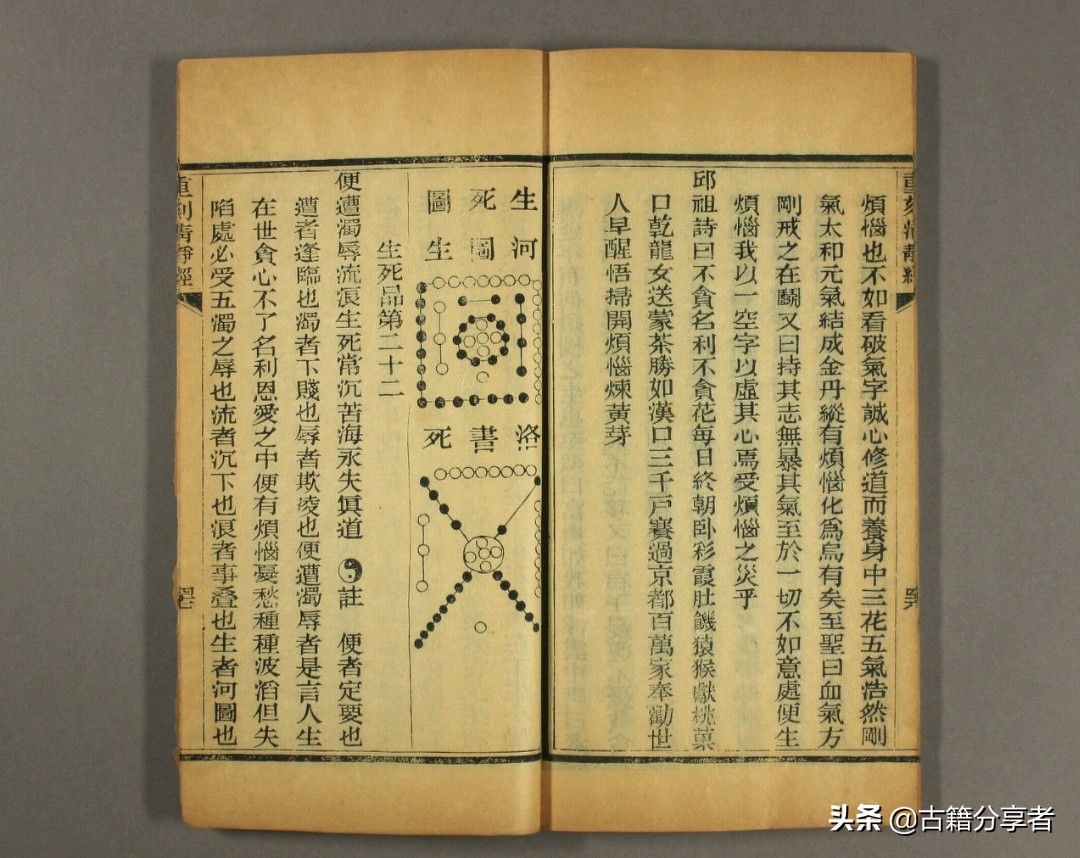 煩惱也不如看破氣字誠心修道而養身中三花五氣浩然剛
氣太和元氣結成金丹縱有煩惱化為烏有矣至聖曰血氣方
剛戒之在鬭又曰持其志無暴其氣至於一切不如意處便生
煩惱我以一空字以虛其心焉受煩惱之災乎
邱祖詩曰不貪名利不貪花每日終朝卧彩霞肚饑猿猴獻桃菓
口乾龍女送蒙茶勝如漢口三千戸賽過京都百萬家奉勸世
人早醒悟掃開煩惱煉黃芽
生死圖
河圖生
洛書死
生死品第二十二
便遭濁辱流浪生死常沉苦海永失眞道 註 便者定要也
遭者逢臨也濁者下賤也辱者欺凌也便遭濁辱者是言人生
在世貪心不了名利恩愛之中便有煩惱憂愁種種波滔但失
陷處必受五濁之辱也流者沉下也浪者事叠也生者河圖也
重刻清淨經
头条 @古籍分享者